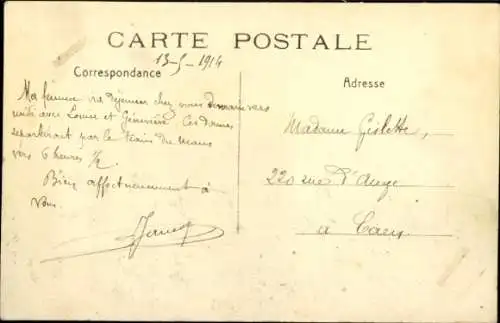 CARTE POSTALE
13-5-1914
Correspondance
Adresse
Ma femme ira déjeuner chez vous demain vers
midi avec Louise et Geneviève. Ces dames
repartiront par le train du Mans
vers 6 heures 1/2.
Bien affectueusement à
Vous.
Madame Gislette,
220 rue d'Auge
à Caen